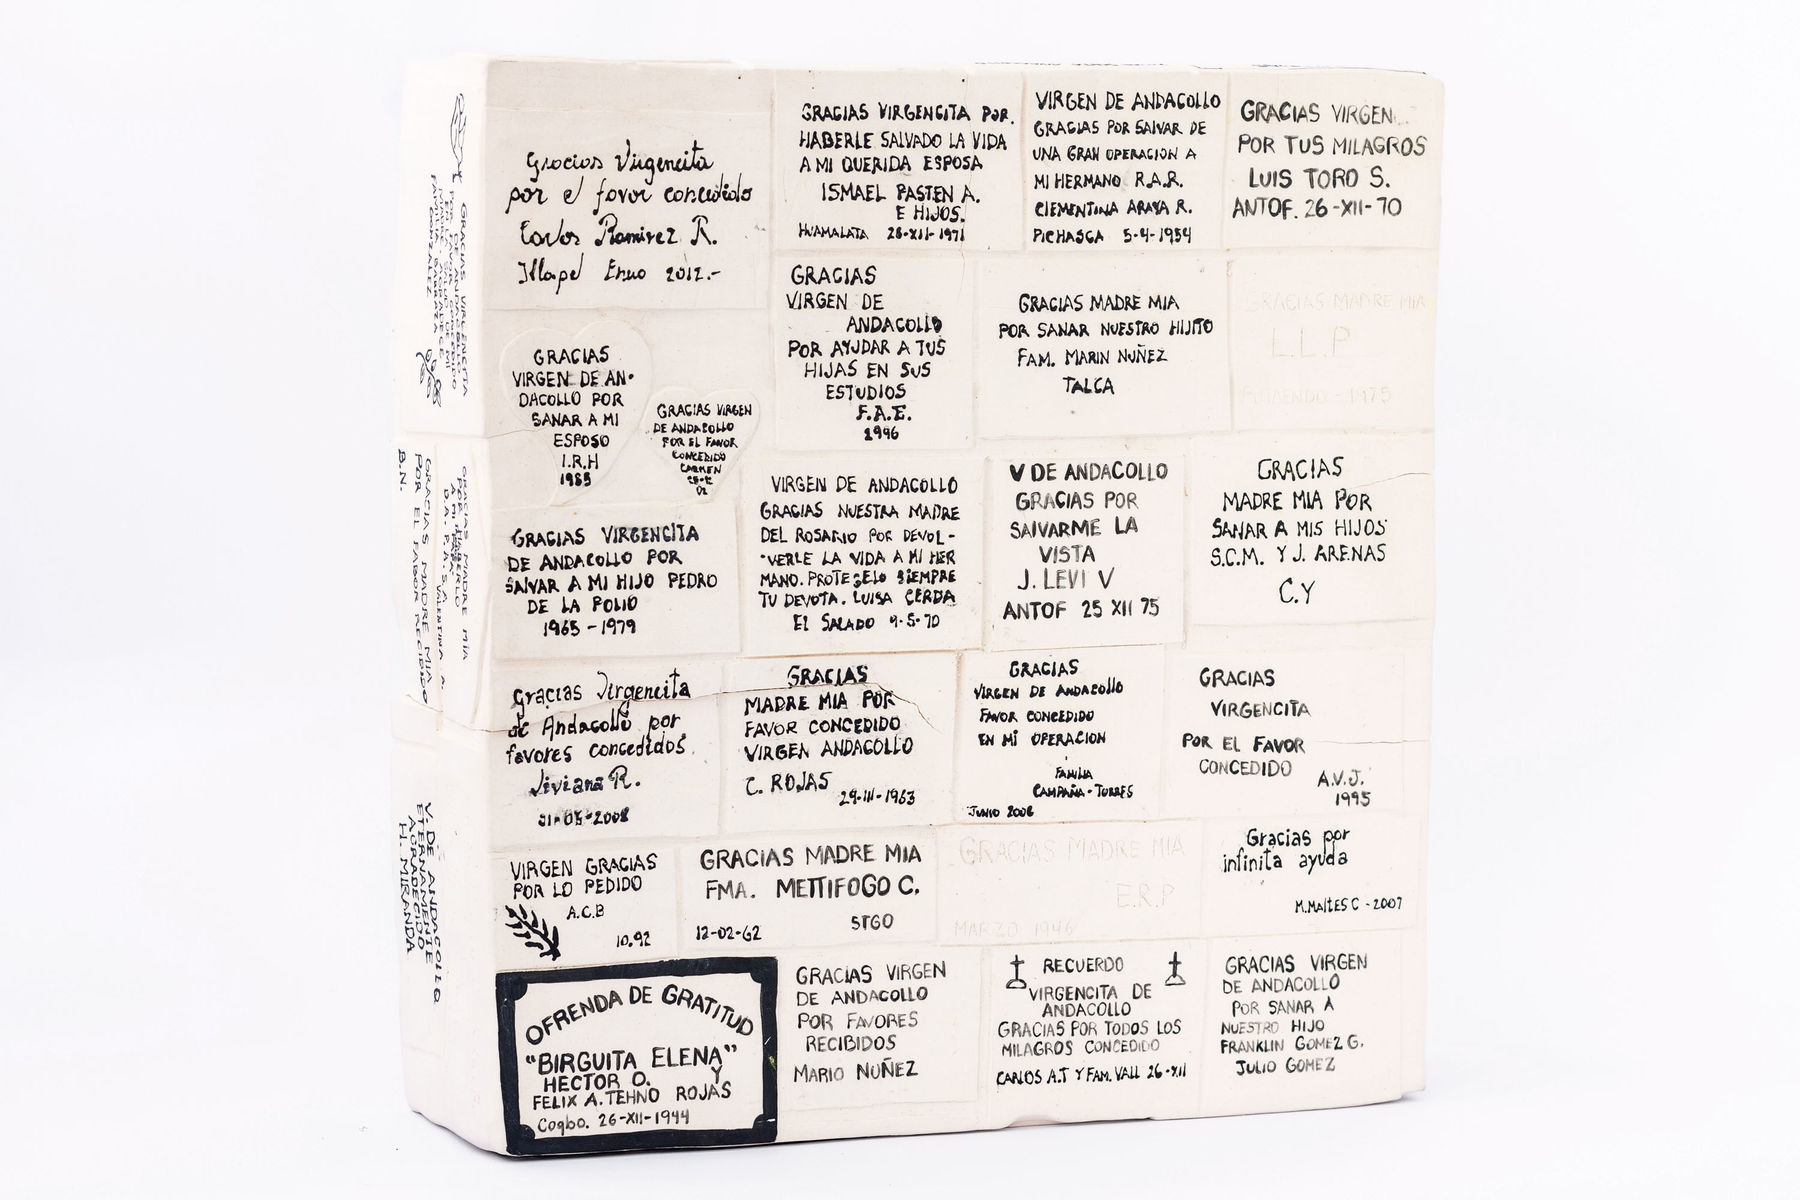 Gracias Virgencita
por el favor concedido
Carlos Ramirez R.
Illapel Enero 2012.-
GRACIAS VIRGENCITA POR
HABERLE SALVADO LA VIDA
A MI QUERIDA ESPOSA
ISMAEL PASTEN A.
E HIJOS.
HUAMALATA 26-XII-1971
VIRGEN DE ANDACOLLO
GRACIAS POR SALVAR DE
UNA GRAN OPERACION A
MI HERMANO R.A.R.
CLEMENTINA ARAYA R.
PICHASCA 5-4-1954
GRACIAS VIRGEN
POR TUS MILAGROS
LUIS TORO S.
ANTOF. 26-XII-70
GRACIAS
VIRGEN DE AN-
DACOLLO POR
SANAR A MI
ESPOSO
I.R.H
1985
GRACIAS VIRGEN
DE ANDACOLLO
POR EL FAVOR
CONCEDIDO
CARMEN
02
GRACIAS
VIRGEN DE
ANDACOLLO
POR AYUDAR A TUS
HIJAS EN SUS
ESTUDIOS
F.A.E.
1996
GRACIAS MADRE MIA
POR SANAR NUESTRO HIJITO
FAM. MARIN NUÑEZ
TALCA
GRACIAS MADRE MIA
L.L.P
PUTAENDO - 1975
GRACIAS VIRGENCITA
DE ANDACOLLO POR
SALVAR A MI HIJO PEDRO
DE LA POLIO
1965 - 1979
VIRGEN DE ANDACOLLO
GRACIAS NUESTRA MADRE
DEL ROSARIO POR DEVOL-
VERLE LA VIDA A MI HER
MANO. PROTEGELO SIEMPRE
TU DEVOTA. LUISA CERDA
EL SALADO 9-5-70
V DE ANDACOLLO
GRACIAS POR
SALVARME LA
VISTA
J. LEVI V
ANTOF 25 XII 75
GRACIAS
MADRE MIA POR
SANAR A MIS HIJOS
S.C.M. Y J. ARENAS
C.Y
Gracias Virgencita
de Andacollo por
favores concedidos
Viviana R.
31-05-2008
GRACIAS
MADRE MIA POR
FAVOR CONCEDIDO
VIRGEN ANDACOLLO
C. ROJAS
29-III-1963
GRACIAS
VIRGEN DE ANDACOLLO
FAVOR CONCEDIDO
EN MI OPERACION
FAMILIA
CAMPAÑA-TORRES
JUNIO 2006
GRACIAS
VIRGENCITA
POR EL FAVOR
CONCEDIDO
A.V.J.
1995
VIRGEN GRACIAS
POR LO PEDIDO
A.C.B
10.92
GRACIAS MADRE MIA
FMA. METTIFOGO C.
STGO
12-02-62
GRACIAS MADRE MIA
E.R.P
MARZO 1946
Gracias por
infinita ayuda
M.MALTES C - 2007
OFRENDA DE GRATITUD
"BIRGUITA ELENA"
HECTOR O. Y
FELIX A. TEHNO ROJAS
Coqbo. 26-XII-1944
GRACIAS VIRGEN
DE ANDACOLLO
POR FAVORES
RECIBIDOS
MARIO NUÑEZ
RECUERDO
VIRGENCITA DE
ANDACOLLO
GRACIAS POR TODOS LOS
MILAGROS CONCEDIDO
CARLOS A.T Y FAM. VALL 26-XII
GRACIAS VIRGEN
DE ANDACOLLO
POR SANAR A
NUESTRO HIJO
FRANKLIN GOMEZ G.
JULIO GOMEZ
GRACIAS VIRGENCITA
DE ANDACOLLO
POR FAVOR CONCEDIDO
FAMILIA
GONZALEZ
GRACIAS MADRE MIA
POR HABERLO
A MI PAPA
D.A. P.A. S.A
VALENTINA A.
GRACIAS MADRE MIA
POR EL FABOR RECIBIDO
B.N.
V. DE ANDACOLLO
ETERNAMENTE
AGRADECIDO
H. MIRANDA